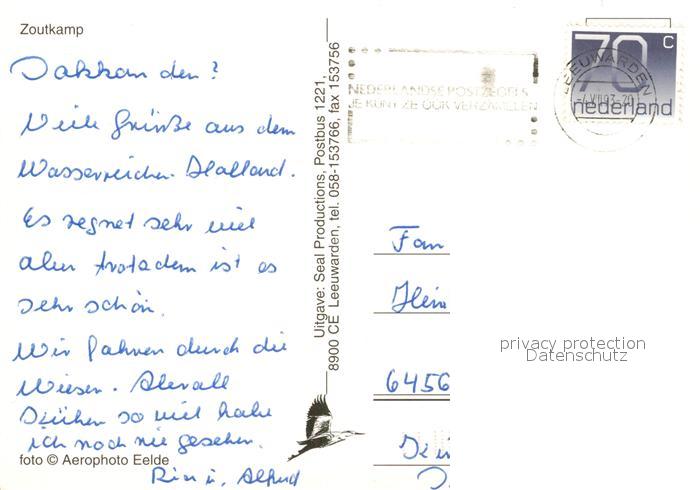 Zoutkamp
Dakkan den?
Viele Grüße aus dem
Wasserreichen Holland.
Es regnet sehr viel
aber trotzdem ist es
sehr schön.
Wir fahren durch die
Wiesen. Überall
so viel habe
ich noch nie gesehen.
foto © Aerophoto Eelde
Ria u. Alfred
Uitgave: Seal Productions, Postbus 1221,
8900 CE Leeuwarden, tel. 058-153766, fax 153756
NEDERLANDSE POSTZEGELS
JE KUNT ZE OOK VERZAMELEN
LEEUWARDEN
70 c
nederland
Fam
6456
privacy protection
Datenschutz